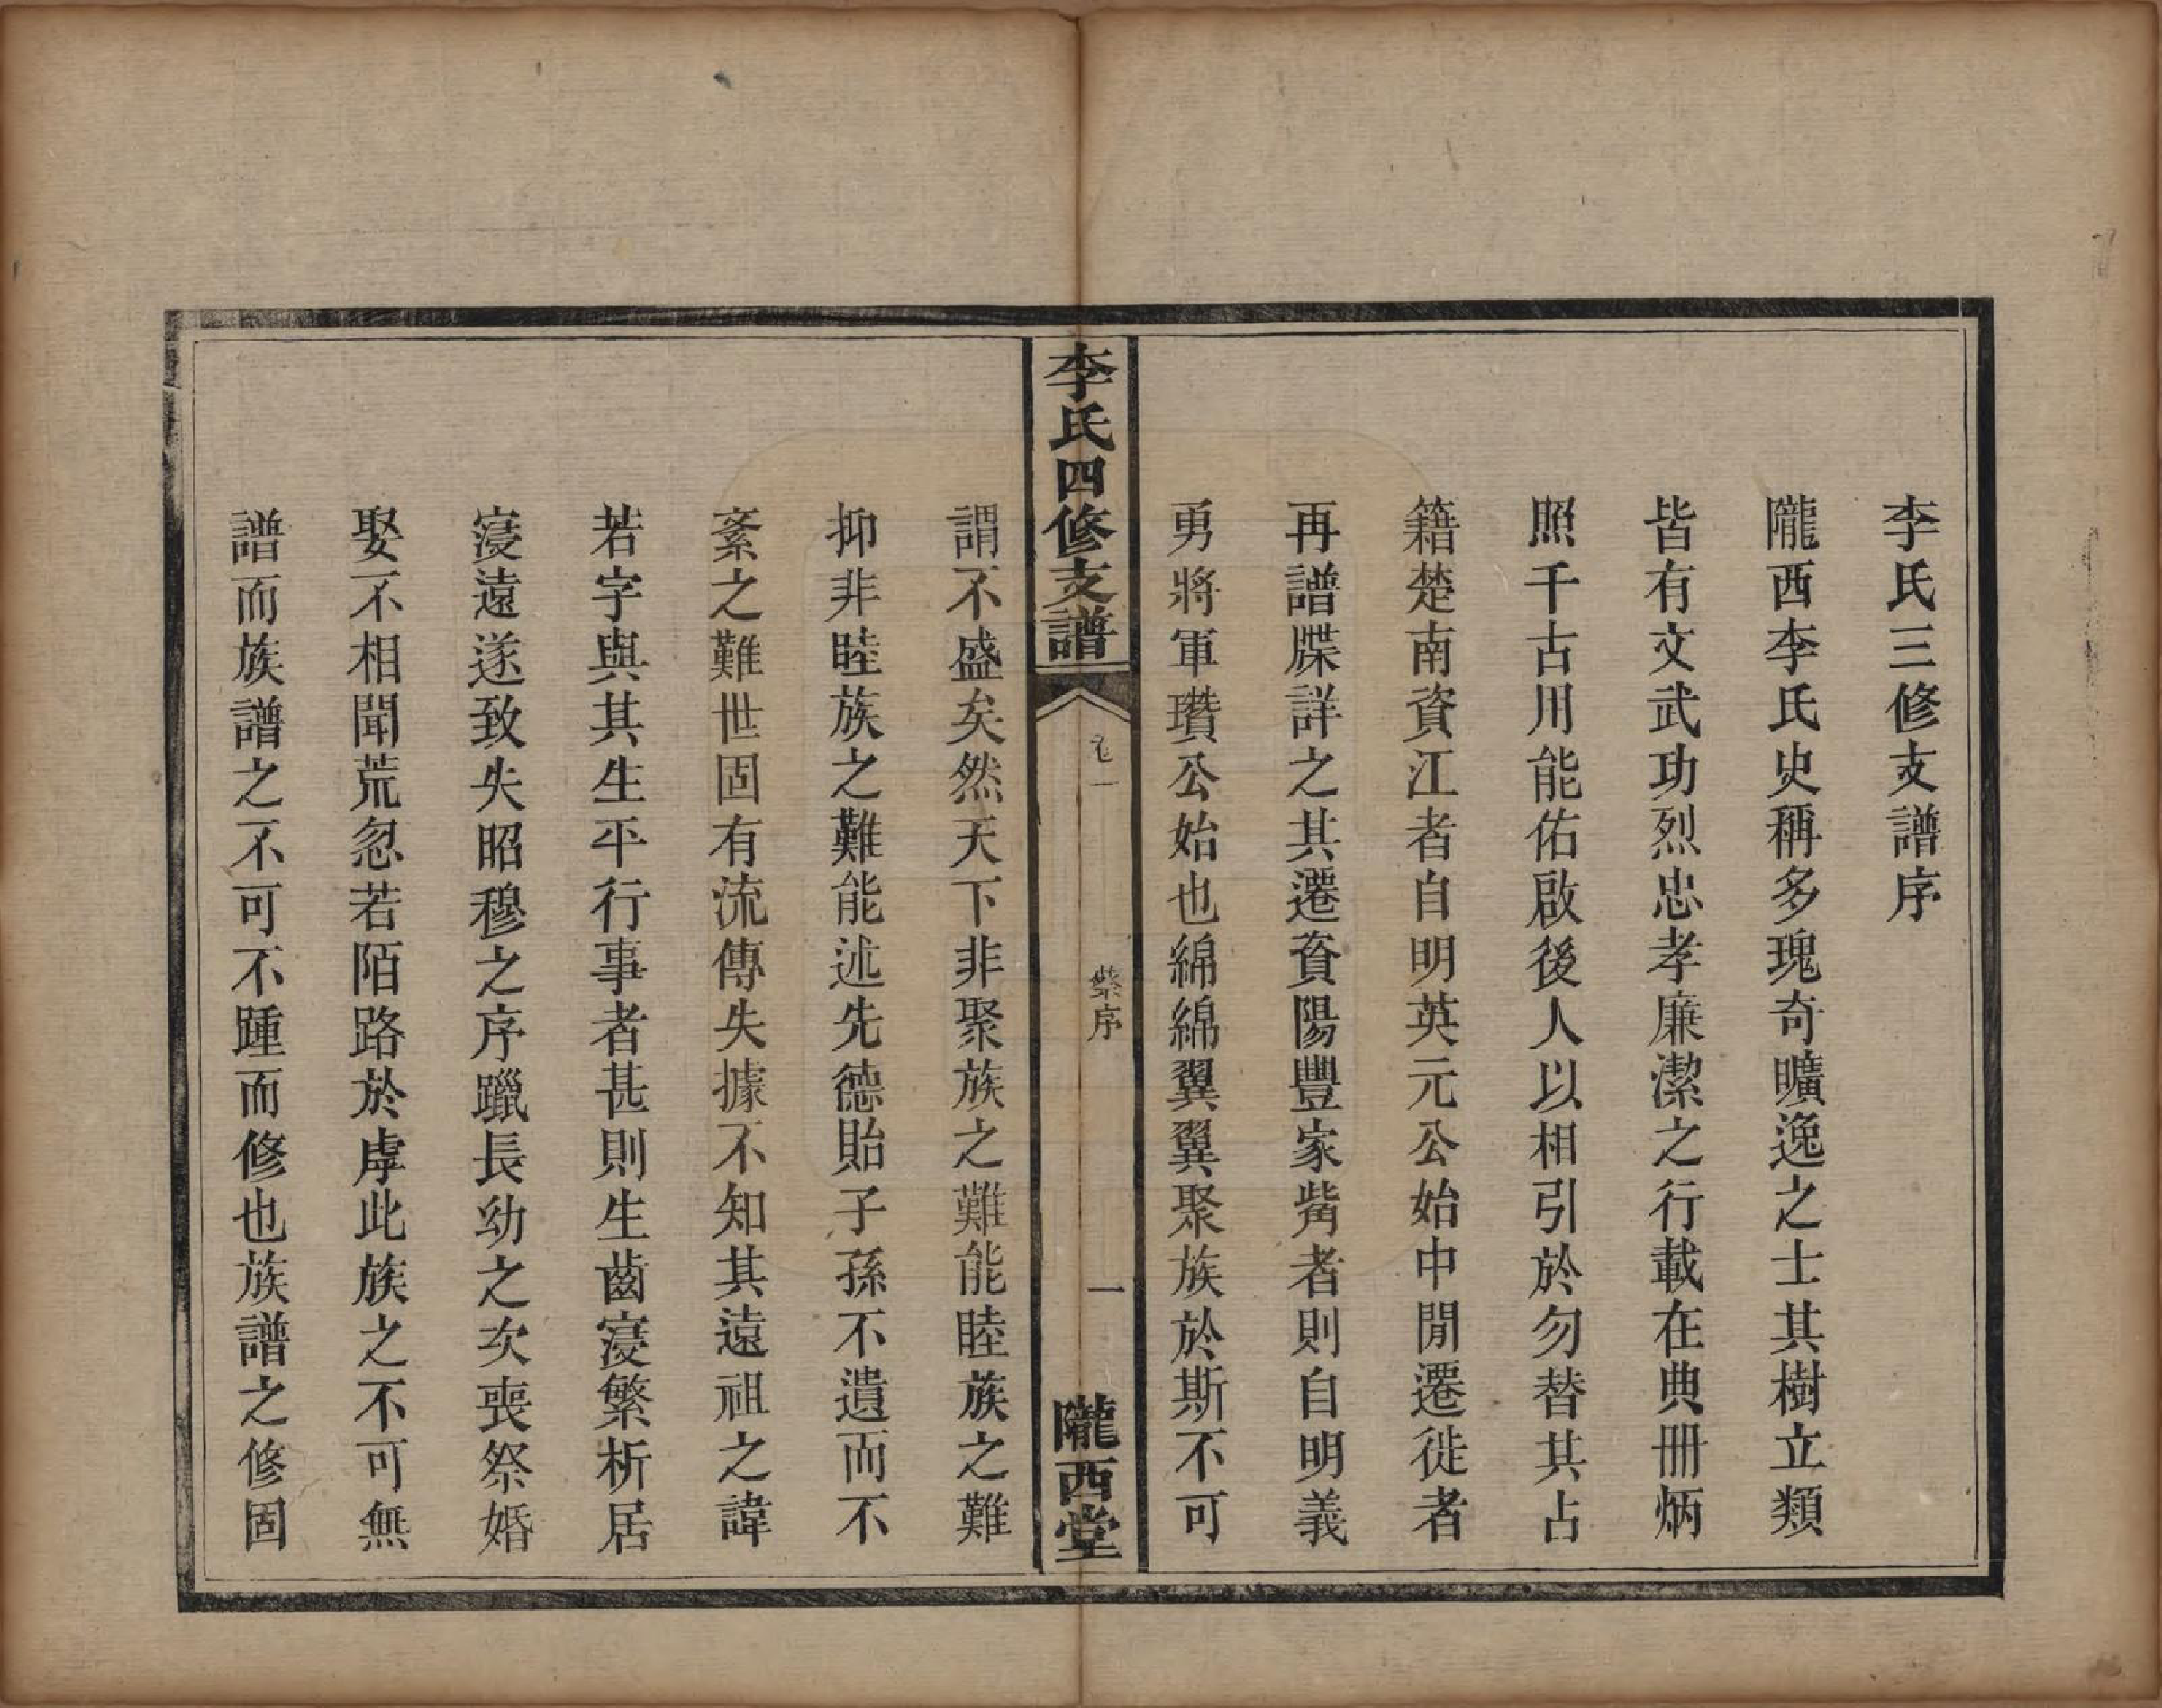 李氏三修支譜序
隴西李氏史稱多瑰奇曠逸之士其樹立類
皆有文武功烈忠孝廉潔之行載在典冊炳
照千古川能佑啟後人以相引於勿替其占
籍楚南資江者自明英元公始中閒遷徙者
再譜牒詳之其遷資陽豐家觜者則自明義
勇將軍瓚公始也綿綿翼翼聚族於斯不可
李氏四修支譜
卷一
序
一
隴西堂
謂不盛矣然天下非聚族之難能睦族之難
抑非睦族之難能述先德貽子孫不遺而不
紊之難世固有流傳失據不知其遠祖之諱
若字與其生平行事者甚則生齒寖繁析居
寖遠遂致失昭穆之序躐長幼之次喪祭婚
娶不相聞荒忽若陌路於虖此族之不可無
譜而族譜之不可不踵而修也族譜之修固